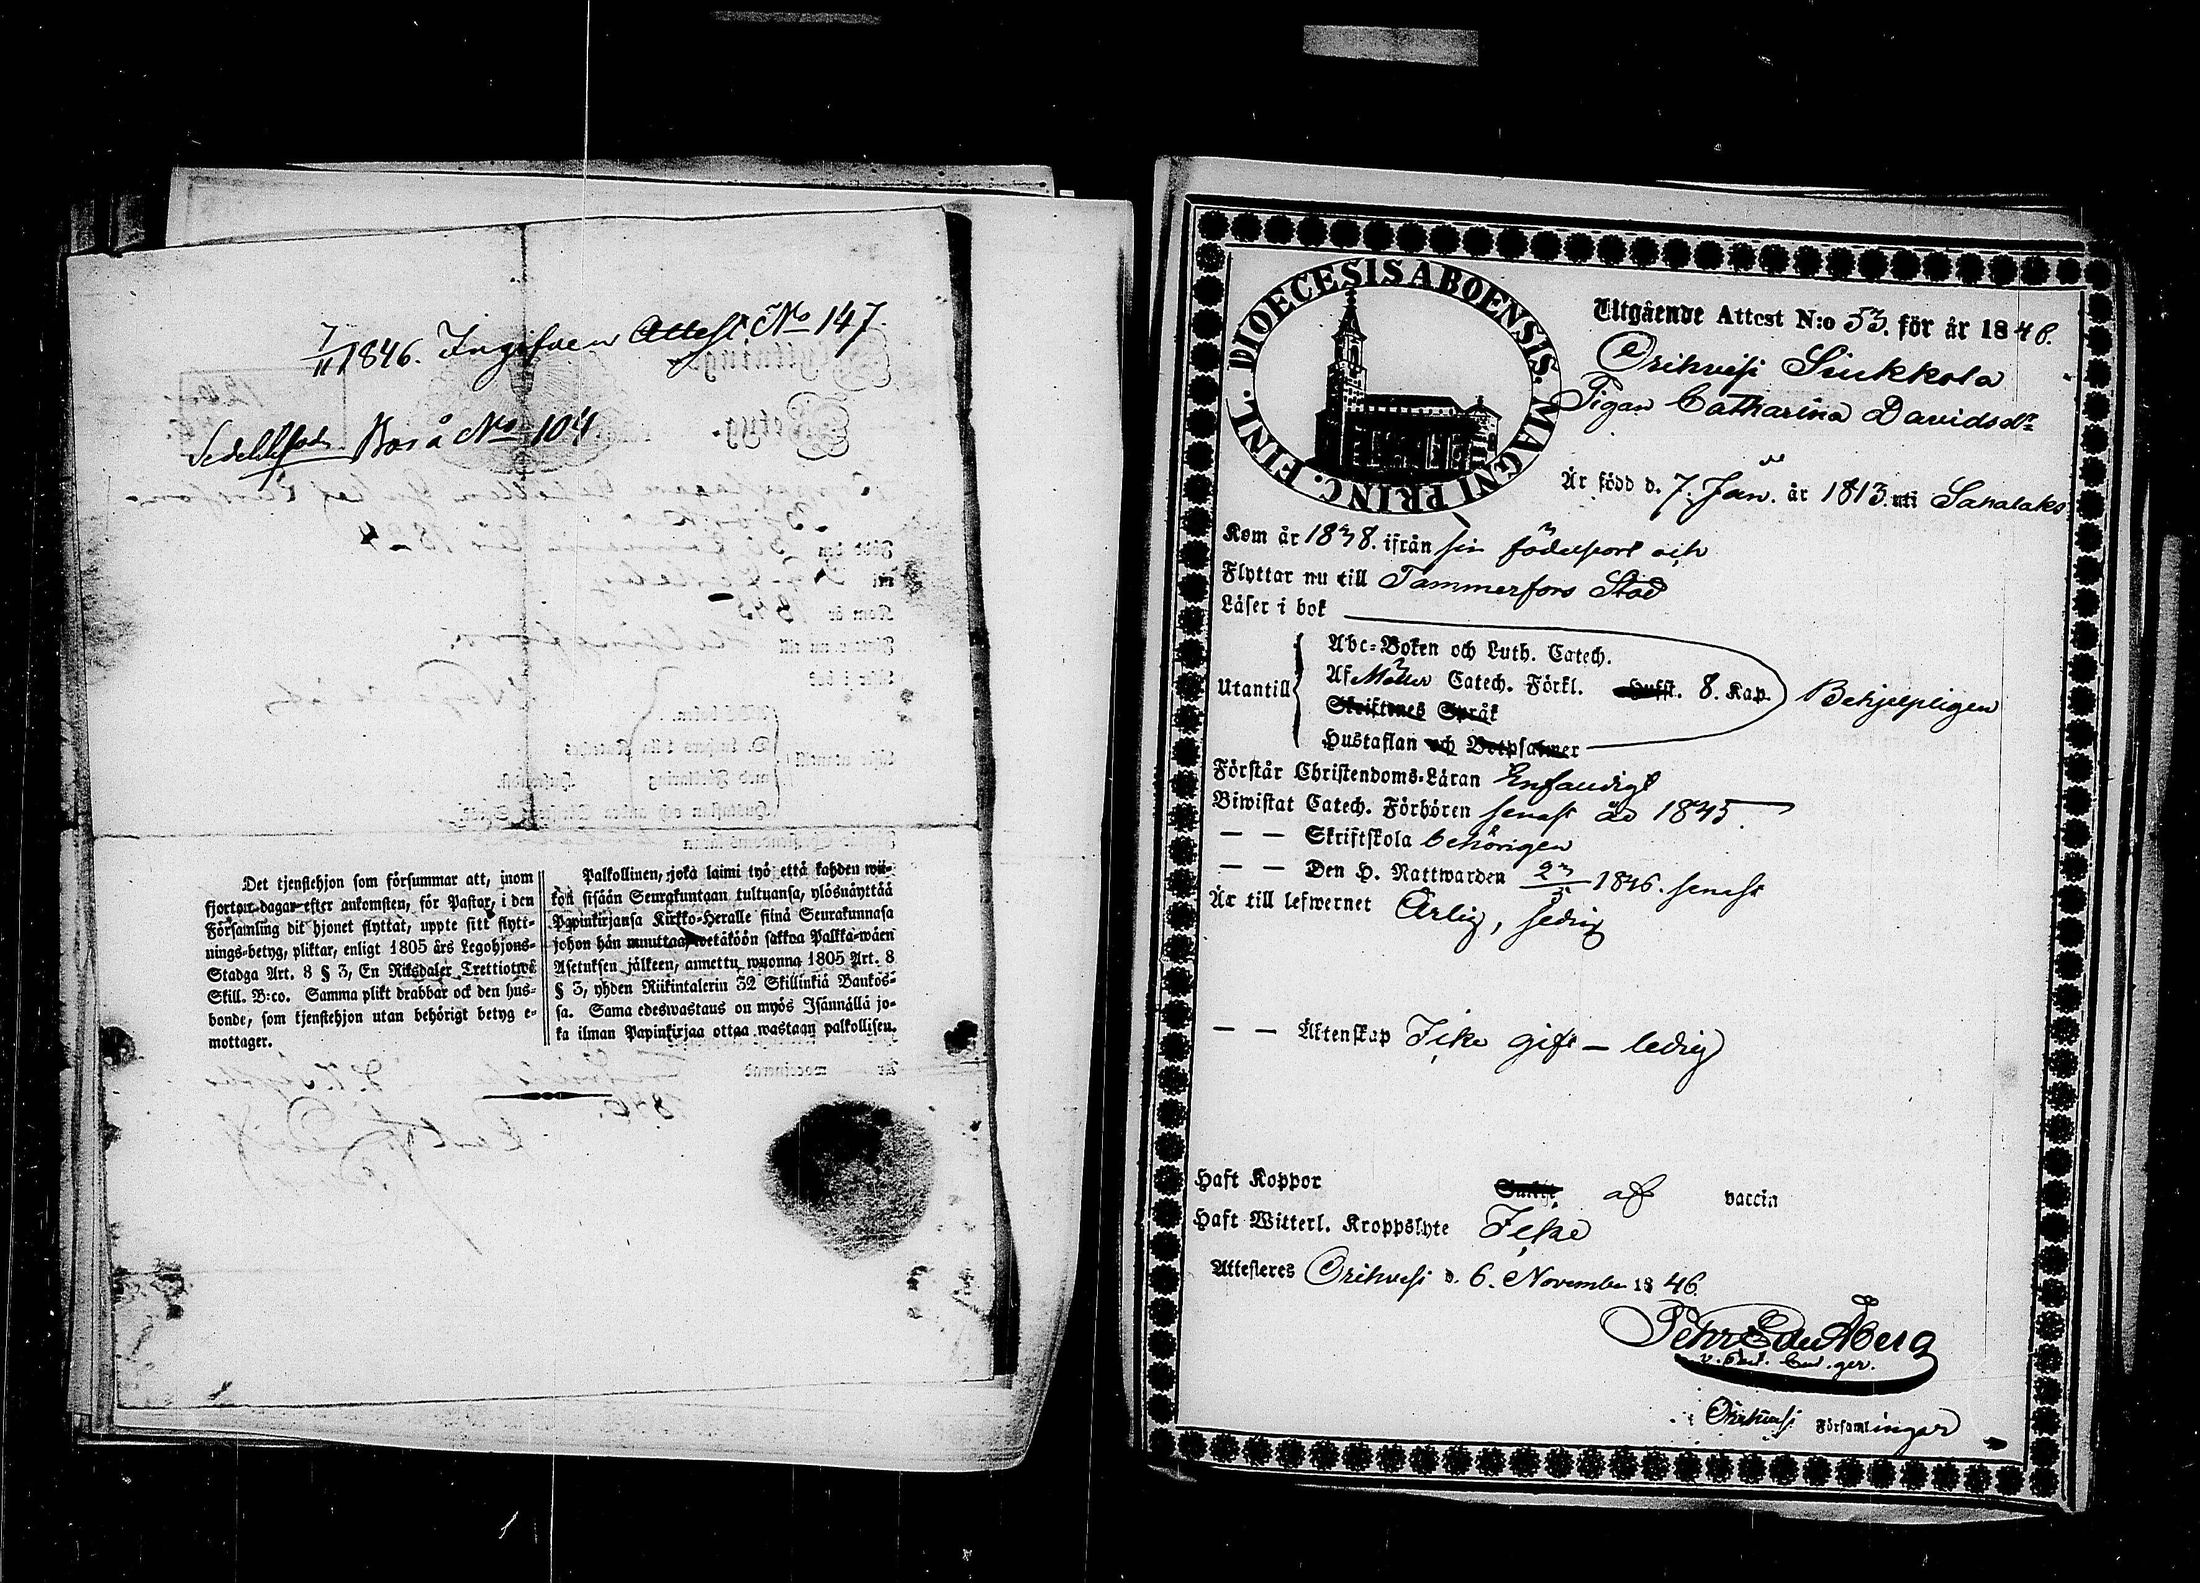 7/11 1846. Ingifven Attest No 147.
No 104
Det tjenstehjon som försummar att, inom
fjorton dagar efter ankomsten, för Pastor, i den
Församling dit hjonet flyttat, uppte sitt flytt-
nings-betyg, pliktar, enligt 1805 års Legohjons-
Stadga Art. 8 § 3, En Riksdaler Trettiotwå
Skill. B:co. Samma plikt drabbar ock den hus-
bonde, som tjenstehjon utan behörigt betyg e-
mottager.
Palkollinen, joka laimi lyö että kahden wii-
kon sisään Seurakuntaan tultuansa, ylösnäyttää
Papinkirjansa Kirkko-Heralle siinä Seurakunnasa
johon hän muuttaa, wetäköön sakkoa Palkka-wäen
Asetuksen jälkeen, annettu wuonna 1805 Art. 8
§ 3, yhden Riikintalerin 32 Skillinkiä Bankos-
sa. Sama edeswastaus on myös Isännällä jo-
ka ilman Papinkirjaa ottaa wastaan palkollisen.
DIOECESIS ABOENSIS. MAGNI PRINC. FINL.
Utgående Attest N:o 53. för år 1846.
Orihvesi Siukkola
Pigan Catharina Davidsdr
Är född d. 7. Jan. år 1813. uti Sahalaks
Kom år 1838. ifrån sin födelseort och
Flyttar nu till Tammerfors Stad
Läser i bok
Utantill
Abc-Boken och Luth. Catech.
Af Möller Catech. Förkl. Hufst. 8. Kap.
Skriftenes Språk
Hustaflan och Botpsalmer
Behjelpligen
Förstår Christendoms-Läran Enfaldigt
Biwistat Catech. Förhören senast år 1845.
— — Skriftskola behörigen
— — Den H. Nattwarden 23/5 1846. senast
Är till lefwernet Ärlig, sedig
— — Äktenskap Icke gift – ledig
Haft Koppor af vaccin
Haft Witterl. Kroppslyte Icke
Attesteres Orihvesi d. 6. November 1846.
Pehr Edv Åberg
Orihvesi Församlingar